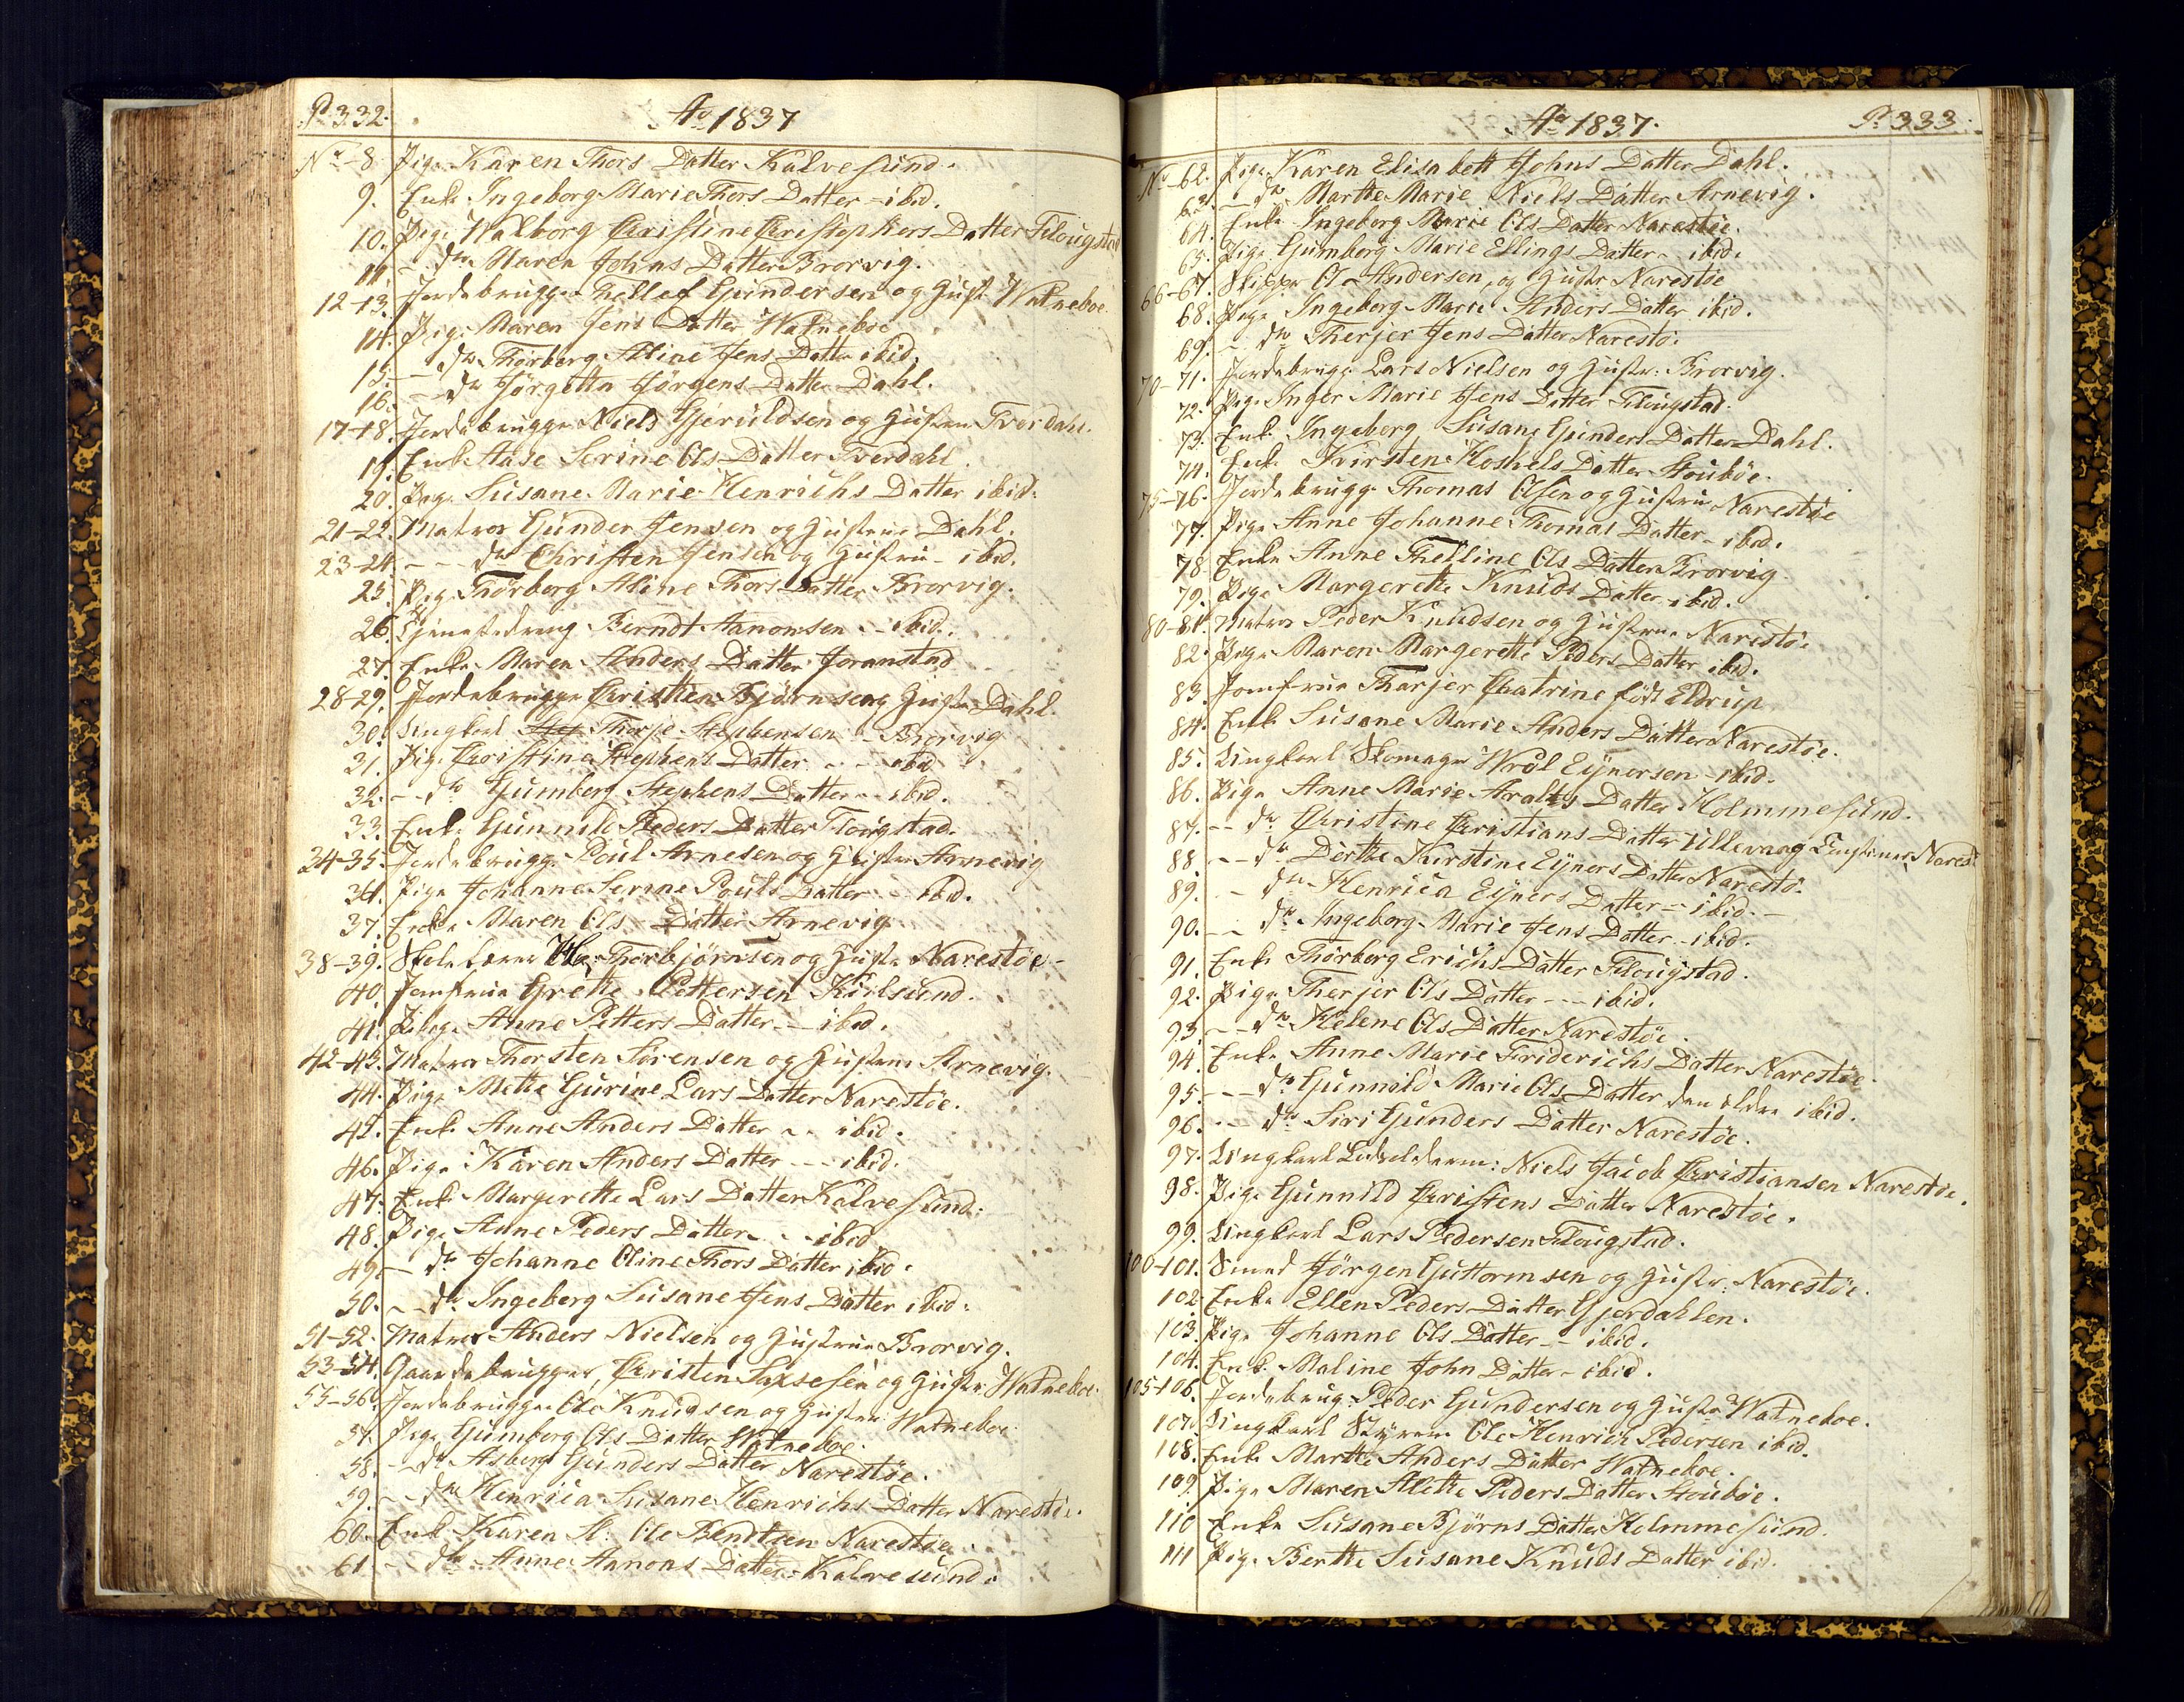 P. 332.
Ao 1837
No 8. Pige Karen Thors Datter Kalvesund.
9. Enke Ingeborg Marie Thors Datter - ibid.
10. Pige Walborg Christine Christophers Datter Flougstad
11 - do Maren Johns Datter Brorvig.
12-13. Jordebruger Thellef Gundersen og Hustr Watneboe.
14. Pige Maren Jens Datter Watneboe
15. - do Thorborg Aline Jens Datter ibid.
16. - do Jörgetta Jörgens Datter Dahl.
17-18. Jordebruger Niels Gieruldsen og Hustrue Tverdahl.
19. Enke Aase Serine Ols Datter Tverdahl.
20. Pige Susane Marie Henrichs Datter ibid.
21-22. Matros Gunder Jensen og Hustrue Dahl.
23-24 - - do Christen Jensen og Hustrue - ibid.
25. Pige Thorborg Aline Thors Datter Brorvig.
26. Tjenestedreng Berndt Aanonsen - ibid.
27. Enke Maren Anders Datter Joranstad
28-29. Jordebruger Christen Bjørnsen og Hustr Dahl.
30. Ungkarl Thorje Stephensen - Brorvig
31. Pige Christine Stephens Datter - - ibid
32. - - do Gumberg Stephens Datter - ibid.
33. Enke Gunnild Peders Datter Flougstad.
34-35. Jordebruger Poul Arnesen og Hustrue Arnevig
36. Pige Johanne Serine Pouls Datter - ibid.
37. Enke Maren Ols - Datter Arnevig
38-39. Skolelærer Thorbjörnsen og Hustr Narestöe -
40. Jomfrue Grethe Pettersen Kirlsund.
41. Pige Anne Petters Datter - - ibid.
42-43. Matros Thorsten Sörensen og Hustrue Arnevig.
44. Pige Mette Gurine Lars Datter Narestöe.
45. Enke Anne Anders Datter - - ibid.
46. Pige Karen Anders Datter - - ibid.
47. Enke Margerethe Lars Datter Kalvesund.
48. Pige Anne Peders Datter - - ibid
49. - do Johanne Oline Thors Datter ibid.
50. - - do Ingeberg Susane Jens Datter ibid.
51-52. Matros Anders Nielsen og Hustrue Brorvig.
53-54. Gaardebruger, Christen Saxesen og Hustr Watneboe.
55-56. Jordebruger Ole Knudsen og Hustrue Watneboe
57. Pige Gumborg Ols Datter Watneboe.
58. - do Asberg Gunders Datter Narestöe.
59. - - do Henrica Susane Henrichs Datter Narestöe.
60. Enke Karen Sl: Ole Bendtsen Narestöe.
61 - do Anne Aanons Datter Kalvesund.
Ao 1837.
P. 333.
No 62. Pige Karen Elisabett Johns Datter Dahl.
63. - do Marthe Marie Niels Datter Arnevig.
64. Enke Ingeborg Marie Ols Datter Narestöe.
65. Pige Gumborg Marie Ellings Datter - ibid.
66-67. Skipper Ole Andersen, og Hustr Narestöe
68. Pige Ingeborg Marie Anders Datter ibid.
69. - do Therjer Jens Datter Narestö.
70-71. Jordebruger Lars Nielsen og Hustr: Brorvig.
72. Pige Inger Marie Jens Datter Flougstad.
73. Enke Ingeborg Susane Gunders Datter Dahl.
74. Enke Kirsten Koshels Datter Stouböe.
75-76. Jordebruger Thomas Olsen og Hustrue Narestöe
77. Pige Anne Johanne Thomas Datter - ibid.
78 Enke Anne Thelline Ols Datter Brorvig
79. Pige Margerethe Knuds Datter - ibid.
80-81. Matros Peder Knudsen og Hustrue Narestöe
82. Pige Maren Margerethe Peders Datter ibid.
83. Jomfrue Tharjer Chatrine född Eldrup
84. Enke Susane Marie Anders Datter Narestöe.
85. Ungkarl Skomager Wrøl Eynersen - ibid.
86. Pige Anne Marie Aralts Datter Holmmesund.
87. - - do Christine Christians Datter Ullevaag Narestö
88 - - do Dorthe Kirstine Eyners Datter Narestö.
89. - do Henrica Eyners Datter - ibid. -
90. - - do Ingeborg Marie Jens Datter - ibid.
91. Enke Thorberg Erichs Datter Flougstad.
92. Pige Therjer Ols Datter - - - ibid.
93. - - do Helene Ols Datter Narestöe.
94. Enke Anne Marie Friderichs Datter Narestöe.
95. - - - do Gunnild Marie Ols Datter den eldre ibid.
96. - - do Siri Gunders Datter Narestöe.
97. Ungkarl Niels Jacob Christiansen Narestöe.
98. Pige Gunnild Christens Datter Narestöe.
99. Ungkarl Lars Pedersen Flougstad.
100-101. Smed Jörgen Guttormsen og Hustr: Narestöe.
102. Enke Ellen Peders Datter Gjerdahlen.
103. Pige Johanne Ols Datter - - ibid.
104. Enke Maline John Datter - ibid.
105-106. Jordebrug. Peder Gundersen og Hustr Watneboe.
107. Ungkarl Styrm. Ole Henrich Pedersen ibid.
108. Enke Marthe Anders Datter Watneboe.
109. Pige Maren Alethe Peders Datter Stouböe.
110 Enke Susane Bjørns Datter Holmmesund.
111 Pige Berthe Susane Knuds Datter ibid.